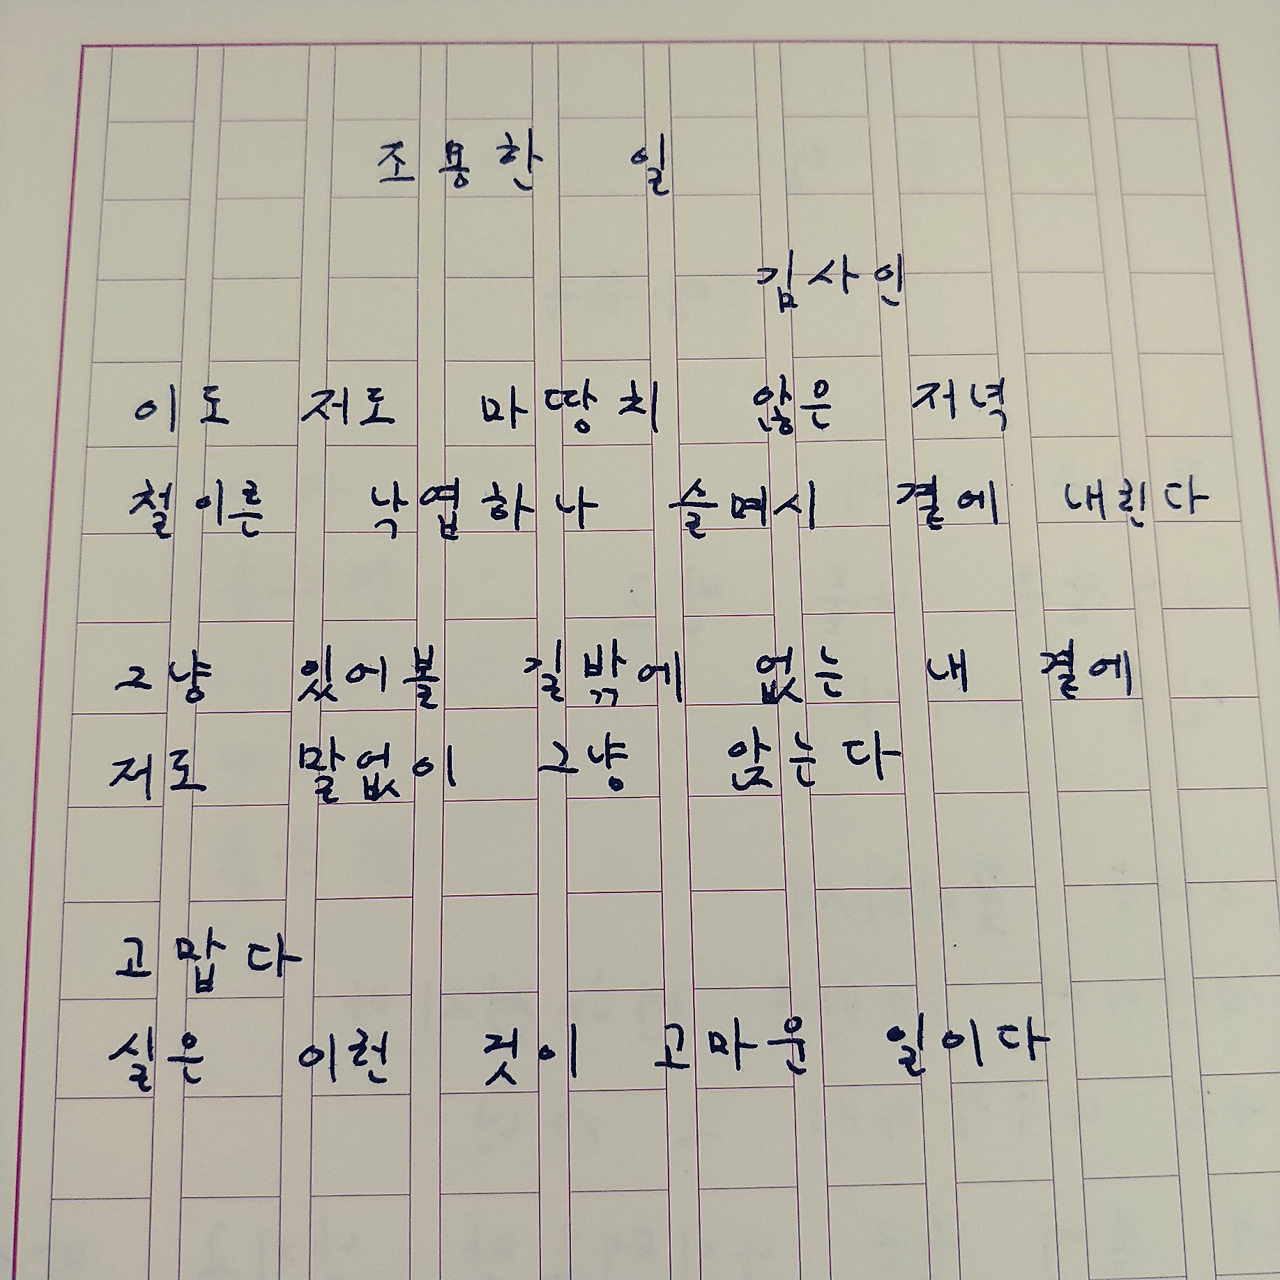 조용한 일
김사인
이도 저도 마땅치 않은 저녁
철이른 낙엽하나 슬며시 곁에 내린다
그냥 있어볼 길밖에 없는 내 곁에
저도 말없이 그냥 앉는다
고맙다
실은 이런 것이 고마운 일이다